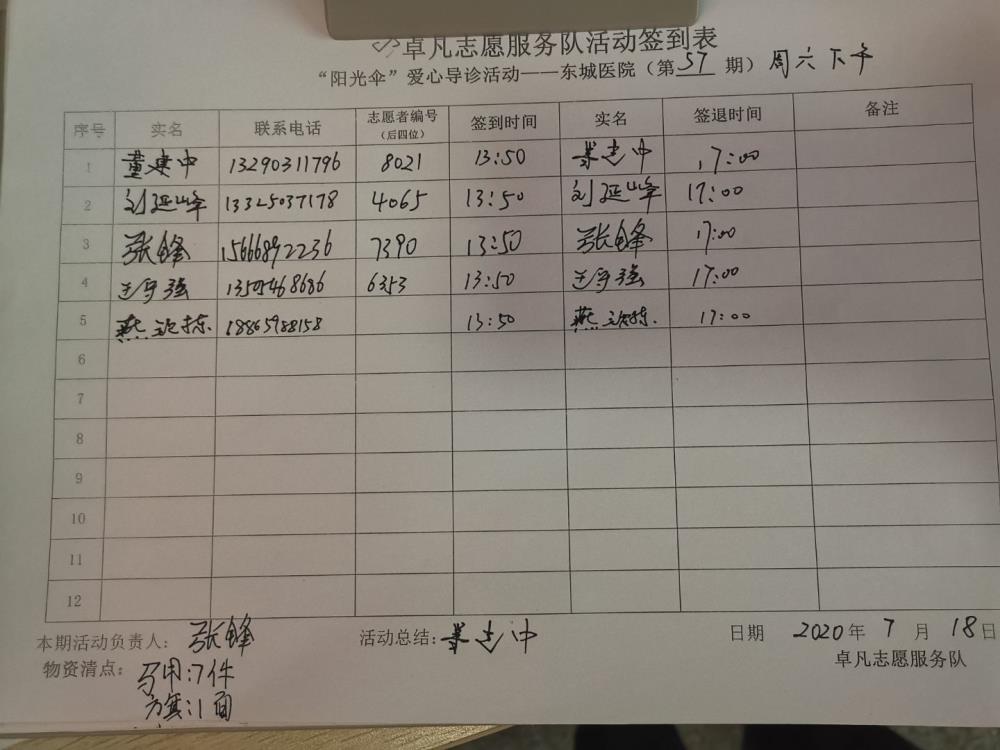 卓凡志愿服务队活动签到表
“阳光伞”爱心导诊活动——东城医院（第57期）周六下午
序号 实名 联系电话 志愿者编号（后四位） 签到时间 实名 签退时间 备注
1 董建中 13290311796 8021 13:50 董建中 17:00
2 刘延峰 13325037178 4065 13:50 刘延峰 17:00
3 张锋 15666892236 7390 13:50 张锋 17:00
4 王守强 13505468686 6353 13:50 王守强 17:00
5 燕 18865988158 13:50 燕 17:00
6
7
8
9
10
11
12
本期活动负责人：张锋 活动总结：董建中 日期 2020年7月18日
物资清点： 马甲:7件 卓凡志愿服务队
旗:1面